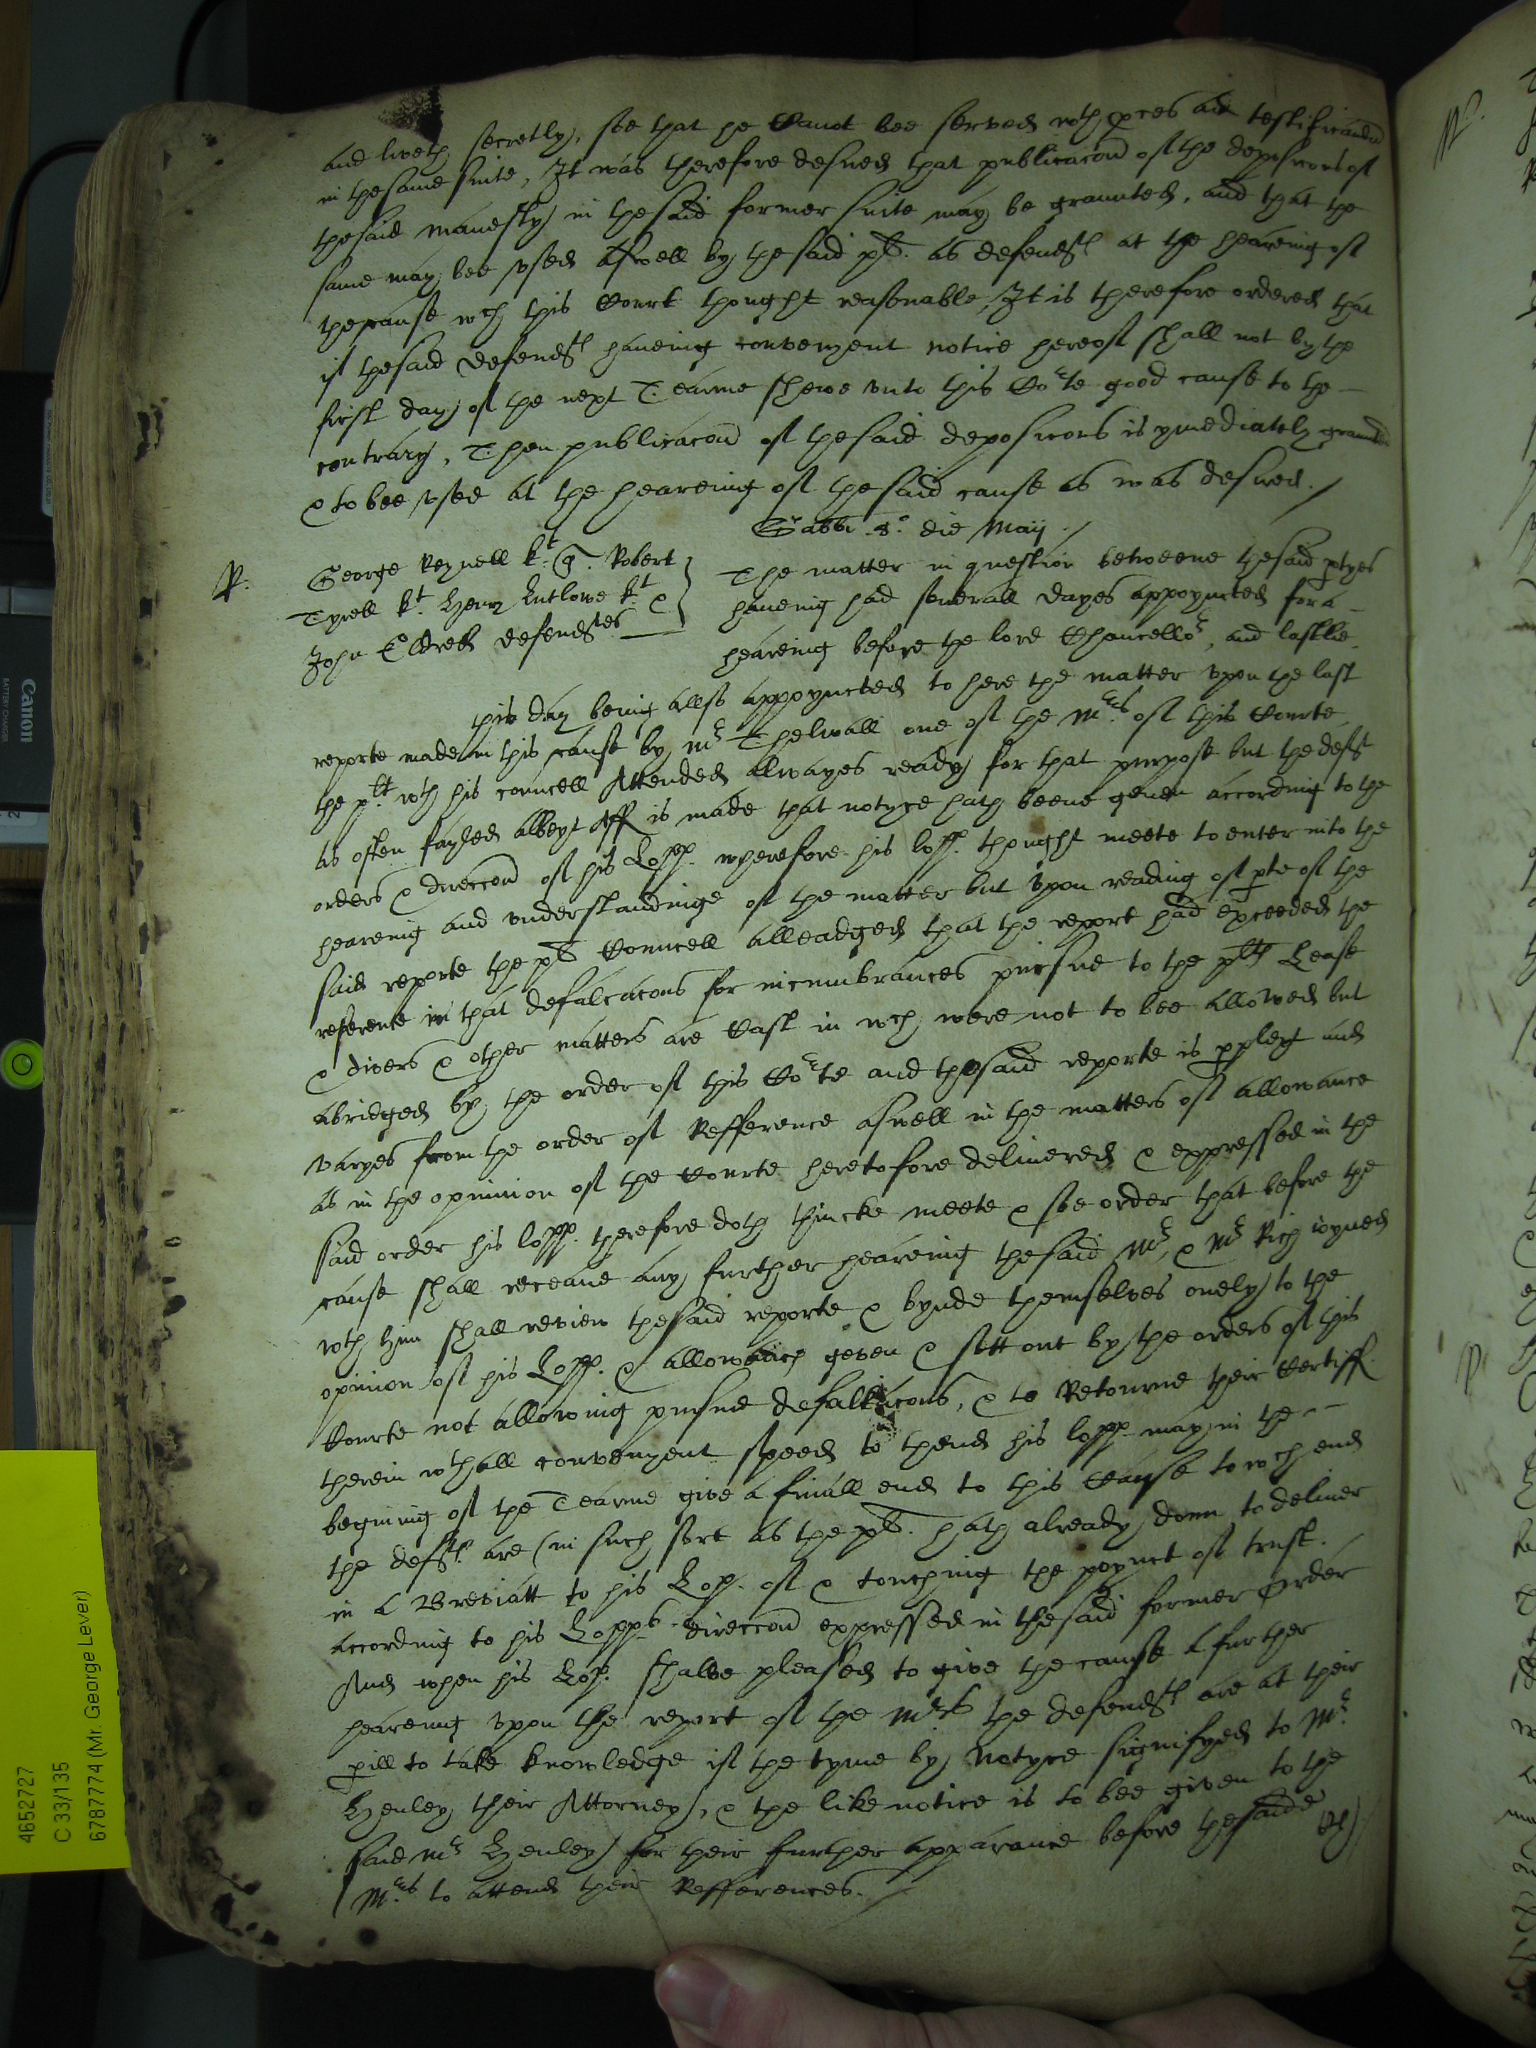 and liveth secretly, soe that he Canot bee served wth pces ad testificandu
in the same suite, It was therefore desired that publicacon of the deposicons of
the said Manestly in the said former suite may be graunted, and that the
same may bee vsed aswell by the said plt. as defendts at the heareing of
the cause wch this Court thought reasonable, It is therefore ordered that
if the said defendts haueing convenyent notice hereof shall not by the
first day of the next Tearme shewe vnto this Corte good cause to the
contrary, Then publicacon of the said deposicons is ymediately graunted
& to bee vsed at the heareing of the said cause as was desired.
Sabbi 8o die Maij
R: George Reynell kt. q. Robert
Tyrell kt. Henry kt &
John Eldred defendtes
The matter in question betweene the said ptyes
haueing had seuerall dayes appoyncted for a
heareing before the lord Chancellor, and lastlie
this day being allso appoyncted to here the matter vpon the last
reporte made in this cause by Mr Thelwall one of the Mrs of this Courte
the plt wth his councell Attended allwayes ready for that purpose but the defts
as often fayled albeyt Aff is made that notyce hath beene geuen according to the
orders & direccon of his Lopp. wherefore his lopp. thought meete to enter into the
heareing and vnderstandinge of the matter but vpon reading of pte of the
said reporte the plts Councell alleadged that the report had exceeded the
reference in that defalcacons for incumbrances puisne to the plts Lease
& divers & other matters are Cast in wch were not to bee allowed but
abridged by the order of this Corte and the said reporte is pplext and
varyes from the order of Refference aswell in the matters of allowance
as in the opinion of the Courte heretofore deliuered & expressed in the
said order his lopp. therefore doth thincke meete & soe order that before the
cause shall receaue any further heareing the said Mr, & Mr Rich ioyned
wth him shall review the said reporte & bynde themselves onely to the
opinion of his Lopp. & allowance geven & sett out by the orders of this
Courte not allowing puisne defallcacons, & to Retourne their Certiff.
therein wth all convenyent speed to thend his lopp. may in the
begining of the Tearme give a finall end to this Cause to wch end
the defts. are (in such sort as the plt. hath already donn to deliuer
in a Breviatt to his Lop. of & touching the poynct of trust.
according to his Lopps direccon expressed in the said former Order
And when his Lop. shalbe pleased to give the cause a further
heareing vpon the report of the Mrs the defendts are at their
pill to take knowledge of the tyme by Notyce signifyed to Mr
Henley their Attorney, & the like notice is to bee given to the
said Mr Henley for their further apparance before the saide
Mrs to attend their Refferences.
Canon
BATTERY CHARGER
4652727
C 33/135
6787774 (Mr. George Lever)